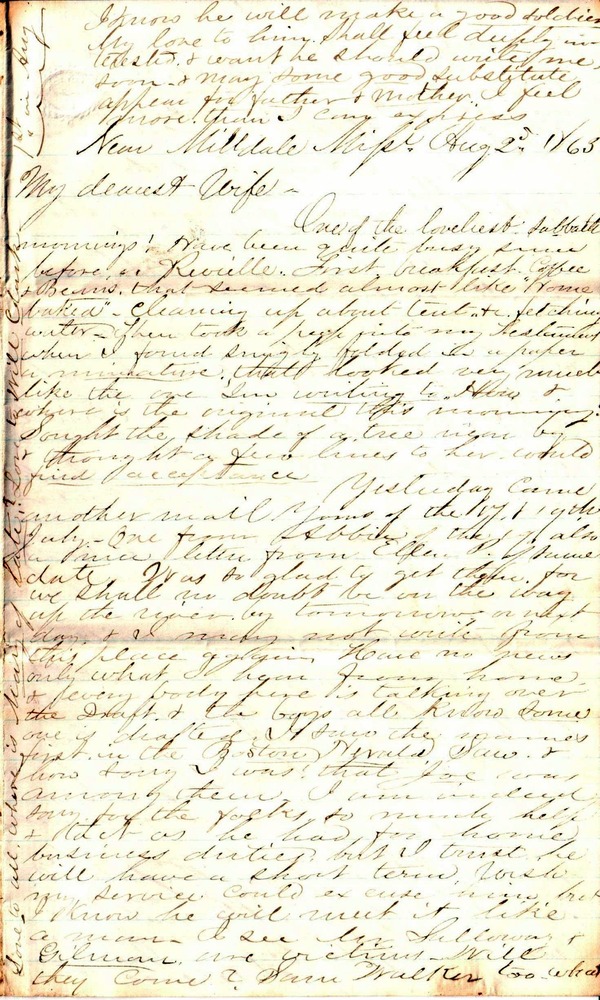 I know he will make a good soldier
My love to him. Shall feel deeply in-
terested. & want he should write me
soon. & may some good substitute
appear for Father & Mother. I feel
more than I can express
Near Milldale Miss. Aug 2d 1863
My dearest Wife -
One of the loveliest Sabbath
mornings! Have been quite busy since
before Reveille. First, breakfast. Coffee
& Beans. that seemed almost like "Home
baked" - cleaning up about tent. & fetching
water - then took a peep into my Testament
when I found snugly folded in a paper
a miniature. that looked very much
like the one I'm writing to. How &
where is the original this morning?
Sought the shade of a tree near by
thought a few lines to her would
find acceptance
Yesterday came
another mail Yours of the 17 &
July - One from Abbie of the 17. also
a nice letter from same
date. Was so glad to get them. for
we shall no doubt be on the way
up the river by tomorrow or next
day. & I may not write from
this place again. Have no news
only what I hear from home.
& every body here is talking over
the Draft. & the boys all know some
one is drafted. I saw the names
first in the Boston Herald. Saw. &
how sorry I was! that Joe was
among them. I am indeed
sorry for the folks. so much help
& as he had for home
business duties. but I trust he
will have a short term. Wish
my service could excuse him but
I know he will meet it like
a man - I see &
Gilman are victims - Will
they come? Sam Walker too. what
Love to all. where is